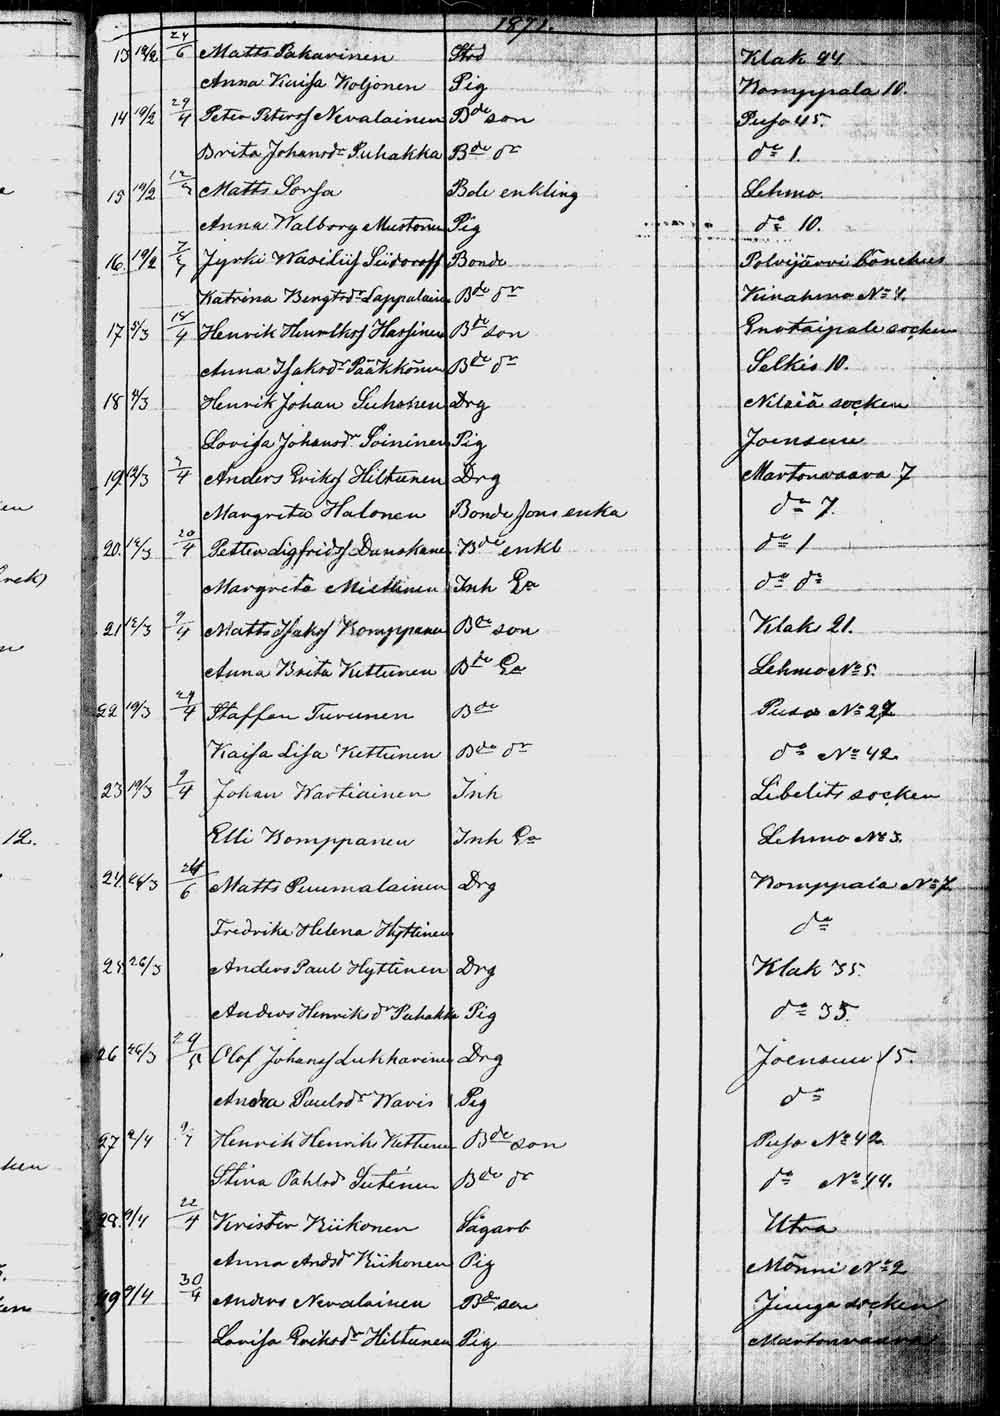 1871.
13 19/2 24/6 Matts Pakarinen Klak 24
Anna Kaisa Koljonen Pig Komppala 10.
14 19/2 29/4 Peter Peterss Nevalainen Bde son Puso 45.
Brita Johansdr Puhakka Bde dr do 1.
15 19/2 Matts Sorsa Bde enkling Lehmo.
Anna Walborg Mustonen Pig do 10.
16. 19/2 Jyrki Wasiliif Siidoroff Bonde Polvijärvi bönehus
Katrina Bengtsdr Lappalainen Bde dr Kinahmo No 4.
17 5/3 18/4 Henrik Henrikss Hassinen Bde son socken
Anna Isaksdr Pääkkönen Bde dr Selkis 10.
18 /3 Henrik Johan Suhonen Drg Nilsiä socken
Lovisa Johansdr Soininen Pig Joensuu
19. 12/3 /4 Anders Erikss Hiltunen Drg Martonvaara 7
Margreta Halonen Bonde sons enka do 7.
20. 12/3 20/4 Petter Sigfridss Danskanen Bde enkl do 1
Margreta Miettinen Inh Ea do do
21 12/3 9/4 Matts Isakss Komppanen Bde son Klak 21.
Anna Brita Kettunen Bde Ea Lehmo No 5.
22 19/3 29/4 Staffan Turunen Bde Puso No 27
Kaisa Lisa Kettunen Bde dr do No 42
23 19/3 9/4 Johan Wartiainen Inh Libelits socken
Elli Komppanen Inh Ea Lehmo No 3.
24. 26/3 24/6 Matts Puumalainen Drg Komppala No 7
Fredrika Helena Hyttinen do
25. 26/3 Anders Paul Hyttinen Drg Klak 35.
Anders Henriksdr Puhakka Pig do 35.
26 26/3 29/5 Olof Johanss Lukkarinen Drg Joensuu 15.
Anna Paulsdr Waris Pig do
27 2/4 9/7 Henrik Henriks Kettunen Bde son Puso No 42
Stina Pahlsdr Sutinen Bde dr do No 44.
28. 9/4 22/4 Krister Kiikonen Sågarb Utra
Anna Andsdr Kiikonen Pig Mönni No 2
29 9/4 30/4 Anders Nevalainen Bde son Juuga socken
Lovisa Eriksdr Hiltunen Pig Martonvaara
12.